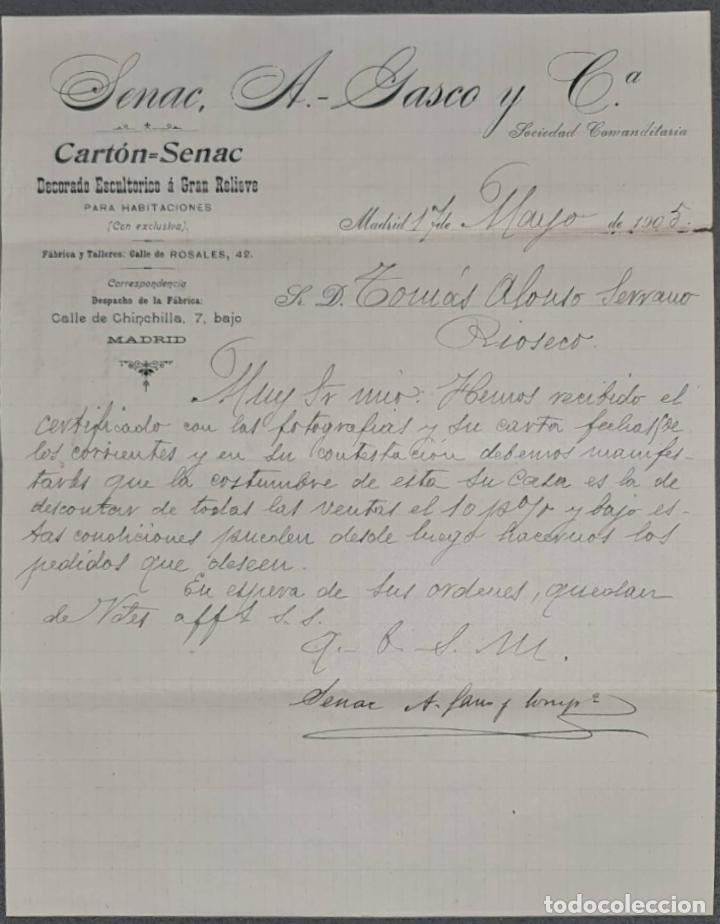 Senac, A.-Gasco y C.ª
Sociedad Comanditaria
Cartón=Senac
Decorado Escultorico á Gran Relieve
PARA HABITACIONES
(Con exclusiva).
Fábrica y Talleres: Calle de ROSALES, 42.
Correspondencia
Despacho de la Fábrica:
Calle de Chinchilla, 7, bajo
MADRID
Madrid 17 de Mayo de 1905.
S. D. Tomás Alonso Serrano
Rioseco.
Muy Sr mio: Hemos recibido el
certificado con las fotografias y su carta fecha de
los corrientes y en su contestación debemos manifes-
tarles que la costumbre de esta su casa es la de
descontar de todas las ventas el 10 p% y bajo es-
tas condiciones pueden desde luego hacernos los
pedidos que deseen.
En espera de sus ordenes, quedan
de Vdes aff s. s.
q. b. s. M.
Senac A. Gasco y Compª
todocoleccion